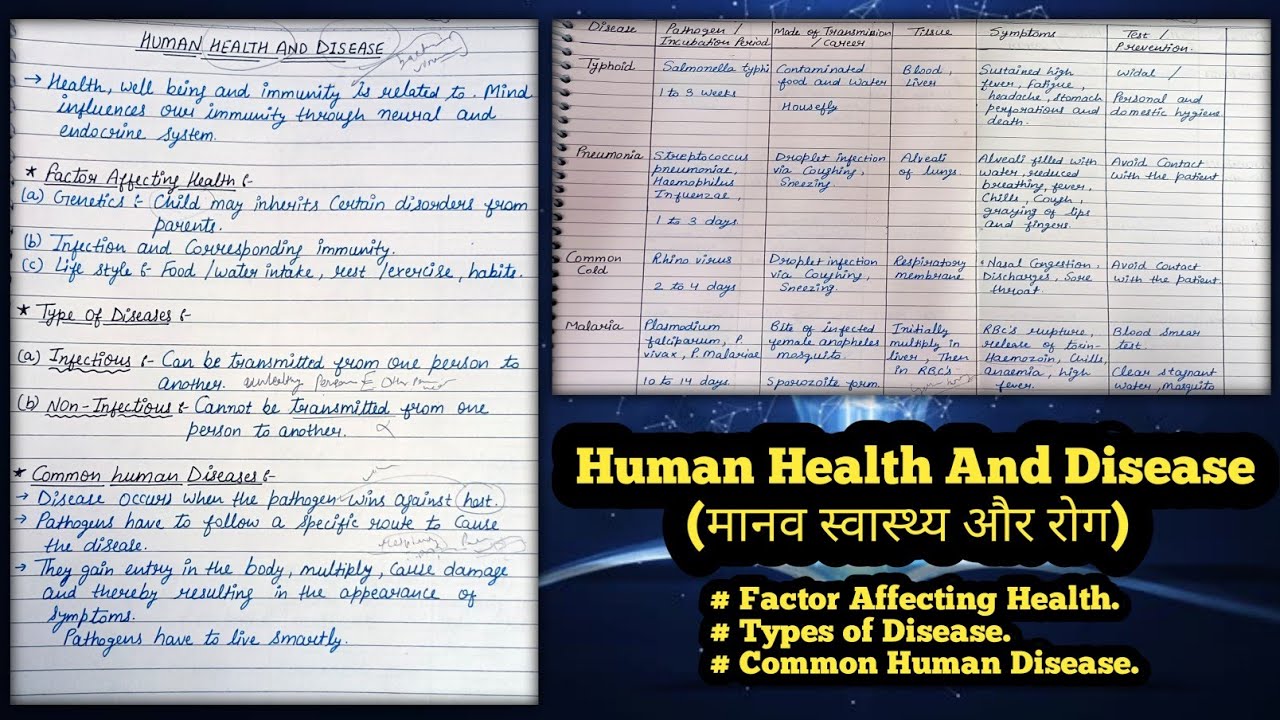 HUMAN HEALTH AND DISEASE
→ Health, well being and immunity is related to. Mind
influences our immunity through neural and
endocrine system.
* Factor Affecting Health :-
(a) Genetics :- Child may inherits Certain disorders from
parents.
(b) Infection and Corresponding immunity.
(c) Life style :- Food /water intake, rest /exercise, habits.
* Type of Diseases :-
(a) Infectious :- Can be transmitted from one person to
another.
(b) Non-Infectious :- Cannot be transmitted from one
person to another.
* Common human Diseases :-
→ Disease occurs when the pathogen wins against host.
→ Pathogens have to follow a specific route to cause
the disease.
→ They gain entry in the body, multiply, cause damage
and thereby resulting in the appearance of
symptoms.
Pathogens have to live smartly.
Disease
Pathogen /
Incubation Period
Mode of Transmission
/ Career
Tissue
Symptoms
Test /
Prevention.
Typhoid
Salmonella typhi
1 to 3 weeks
Contaminated
food and water
Housefly
Blood,
Liver
Sustained high
fever, Fatigue,
headache, stomach
perforations and
death.
Widal /
Personal and
domestic hygiene
Pneumonia
Streptococcus
pneumoniae,
Haemophilus
Influenzae,
1 to 3 days
Droplet infection
via Coughing,
Sneezing
Alveoli
of lungs.
Alveoli filled with
water, reduced
breathing, fever,
Chills, Cough,
graying of lips
and fingers.
Avoid Contact
with the patient
Common
Cold
Rhino virus
2 to 4 days
Droplet infection
via Coughing,
Sneezing.
Respiratory
membrane
Nasal Congestion.
Discharges, Sore
throat.
Avoid Contact
with the patient.
Malaria
Plasmodium
falciparum, P.
vivax, P. malariae
10 to 14 days.
Bite of infected
female anopheles
mosquito.
Sporozoite form.
Initially
multiply in
liver, Then
in RBC's
RBC's rupture,
release of toxin-
Haemozoin, Chills,
anaemia, high
fever.
Blood smear
test.
Clear stagnant
water, mosquito
Human Health And Disease
(मानव स्वास्थ्य और रोग)
# Factor Affecting Health.
# Types of Disease.
# Common Human Disease.